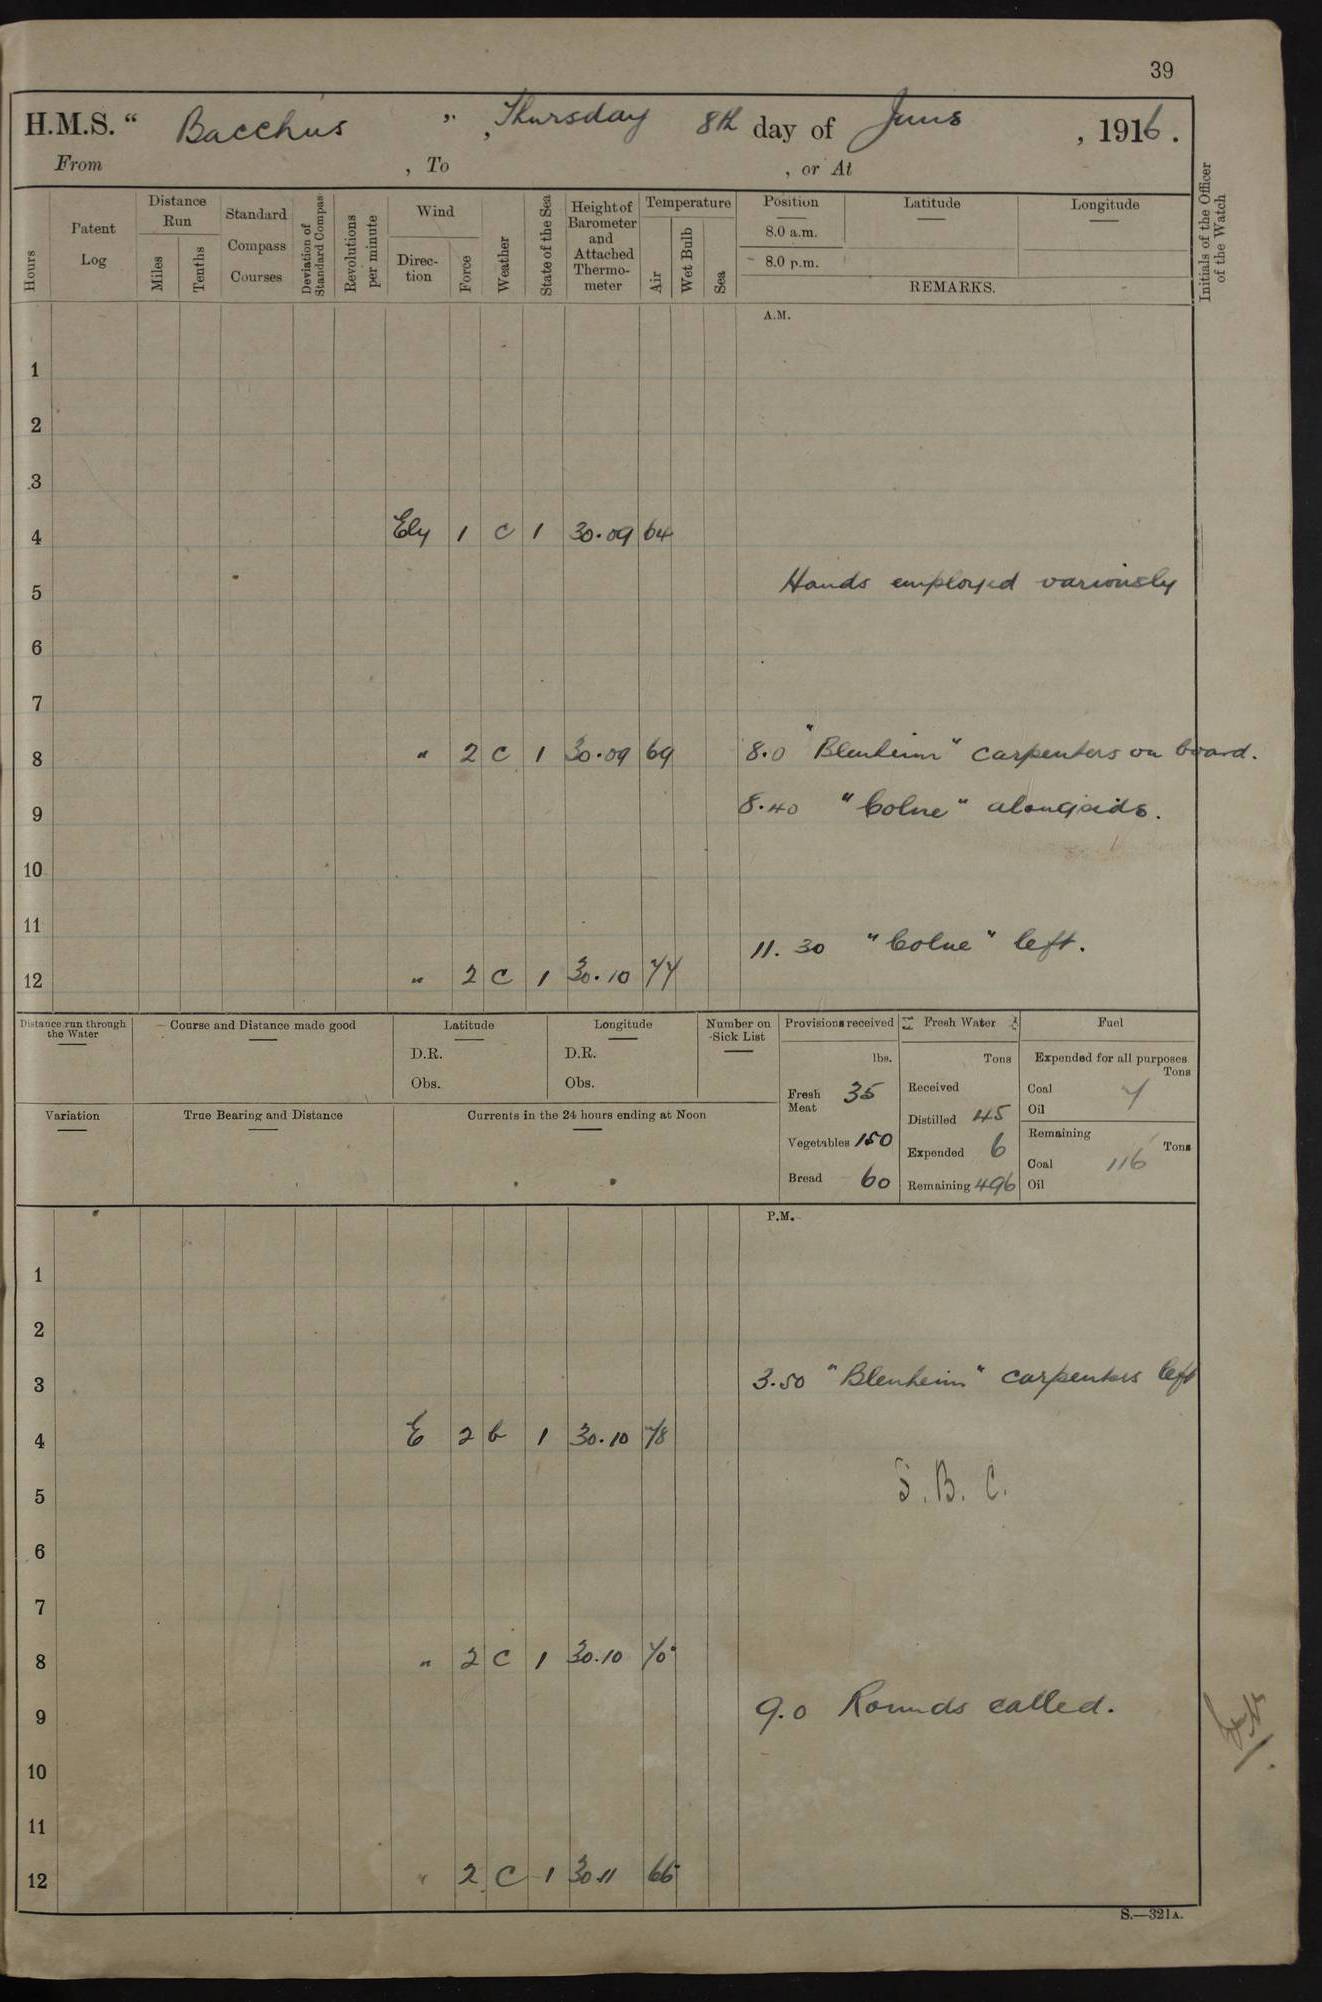 39
H.M.S. " Bacchus " , Thursday 8th day of June , 1916.
From , To , or At
Hours
Patent Log
Distance Run
Miles
Tenths
Standard Compass Courses
Deviation of Standard Compass
Revolutions per minute
Wind
Direction
Force
Weather
State of the Sea
Height of Barometer and Attached Thermometer
Temperature
Air
Wet Bulb
Sea
Position Latitude Longitude
8.0 a.m.
8.0 p.m.
REMARKS.
Initials of the Officer of the Watch
A.M.
1
2
3
4 Ely 1 c 1 30.09 64
5 Hands employed variously
6
7
8 " 2 c 1 30.09 69 8.0 "Blenheim" carpenters on board.
9 8.40 "Colne" alongside.
10
11 11.30 "Colne" left.
12 " 2 c 1 30.10 77
Distance run through the Water
Course and Distance made good
Latitude
D.R.
Obs.
Longitude
D.R.
Obs.
Number on Sick List
Provisions received
lbs.
Fresh Meat 35
Vegetables 150
Bread 60
Fresh Water
Tons
Received
Distilled 45
Expended 6
Remaining 496
Fuel
Expended for all purposes
Tons
Coal 7
Oil
Remaining
Tons
Coal 116
Oil
Variation
True Bearing and Distance
Currents in the 24 hours ending at Noon
P.M.
1
2
3 3.50 "Blenheim" carpenters left
4 E 2 b 1 30.10 78
5 S.B.C.
6
7
8 " 2 c 1 30.10 70
9 9.0 Rounds called.
10
11
12 " 2 c 1 30.11 66
S.—321A.